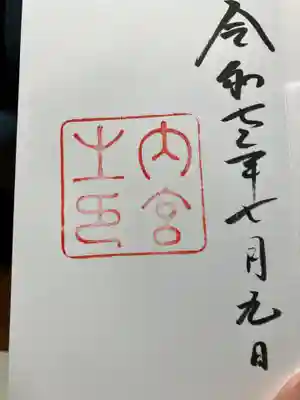 令和七年七月元日
内宮
之印